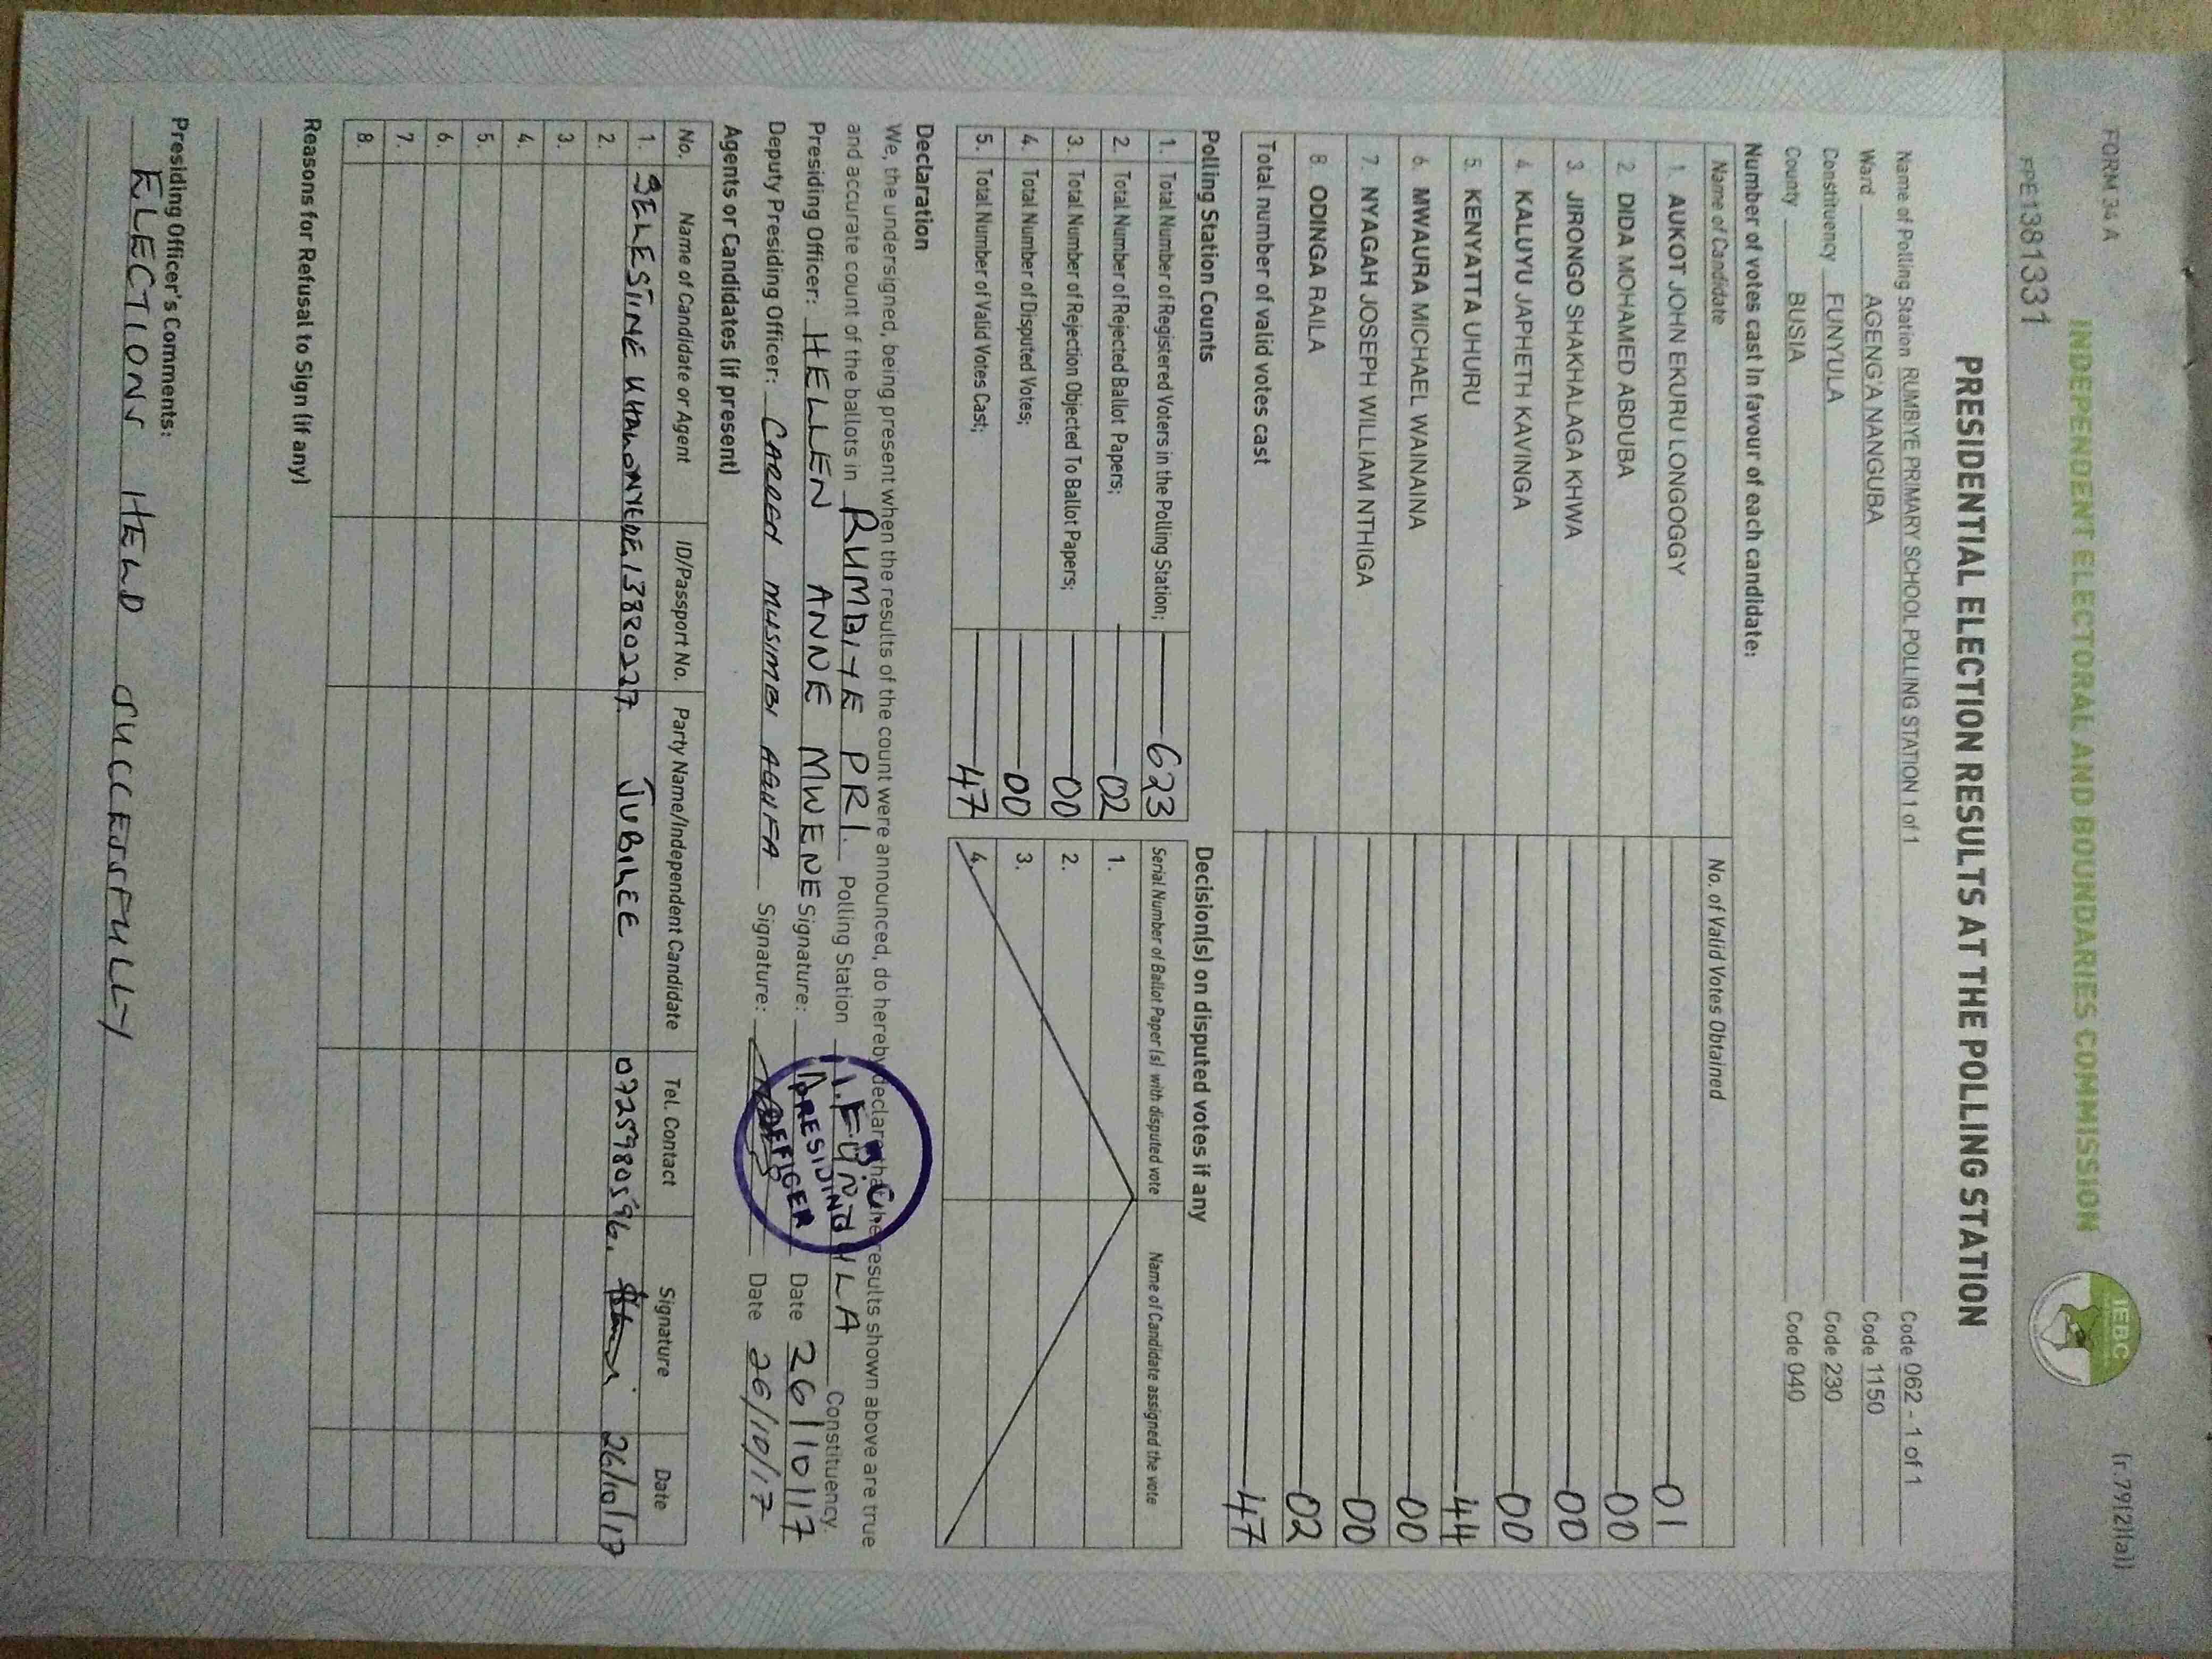 FORM 34 A
(r.79(2)(a))
INDEPENDENT ELECTORAL AND BOUNDARIES COMMISSION
IEBC
FPE1381331
PRESIDENTIAL ELECTION RESULTS AT THE POLLING STATION
Name of Polling Station RUMBIYE PRIMARY SCHOOL POLLING STATION 1 of 1 Code 062 - 1 of 1
Ward AGENG'A NANGUBA Code 1150
Constituency FUNYULA Code 230
County BUSIA Code 040
Number of votes cast in favour of each candidate:
Name of Candidate No. of Valid Votes Obtained
1. AUKOT JOHN EKURU LONGOGGY 01
2. DIDA MOHAMED ABDUBA 00
3. JIRONGO SHAKHALAGA KHWA 00
4. KALUYU JAPHETH KAVINGA 00
5. KENYATTA UHURU 44
6. MWAURA MICHAEL WAINAINA 00
7. NYAGAH JOSEPH WILLIAM NTHIGA 00
8. ODINGA RAILA 02
Total number of valid votes cast 47
Polling Station Counts
1. Total Number of Registered Voters in the Polling Station; 623
2. Total Number of Rejected Ballot Papers; 02
3. Total Number of Rejection Objected To Ballot Papers; 00
4. Total Number of Disputed Votes; 00
5. Total Number of Valid Votes Cast; 47
Decision(s) on disputed votes if any
Serial Number of Ballot Paper (s) with disputed vote Name of Candidate assigned the vote
1.
2.
3.
4.
Declaration
We, the undersigned, being present when the results of the count were announced, do hereby declare that the results shown above are true
and accurate count of the ballots in RUMBIYE PRI. Polling Station FUNYULA Constituency
Presiding Officer: HELLEN ANNE MWENE Signature: Date 26/10/17
Deputy Presiding Officer: CARREN MUSIMBI AGUFA Signature: Date 26/10/17
I.E.B.C
PRESIDING
OFFICER
Agents or Candidates (if present)
No. Name of Candidate or Agent ID/Passport No. Party Name/Independent Candidate Tel. Contact Signature Date
1. SELESTINE 13880227. JUBILEE 0725980596. 26/10/17
2.
3.
4.
5.
6.
7.
8.
Reasons for Refusal to Sign (if any)
Presiding Officer's Comments:
ELECTIONS HELD SUCCESSFULLY